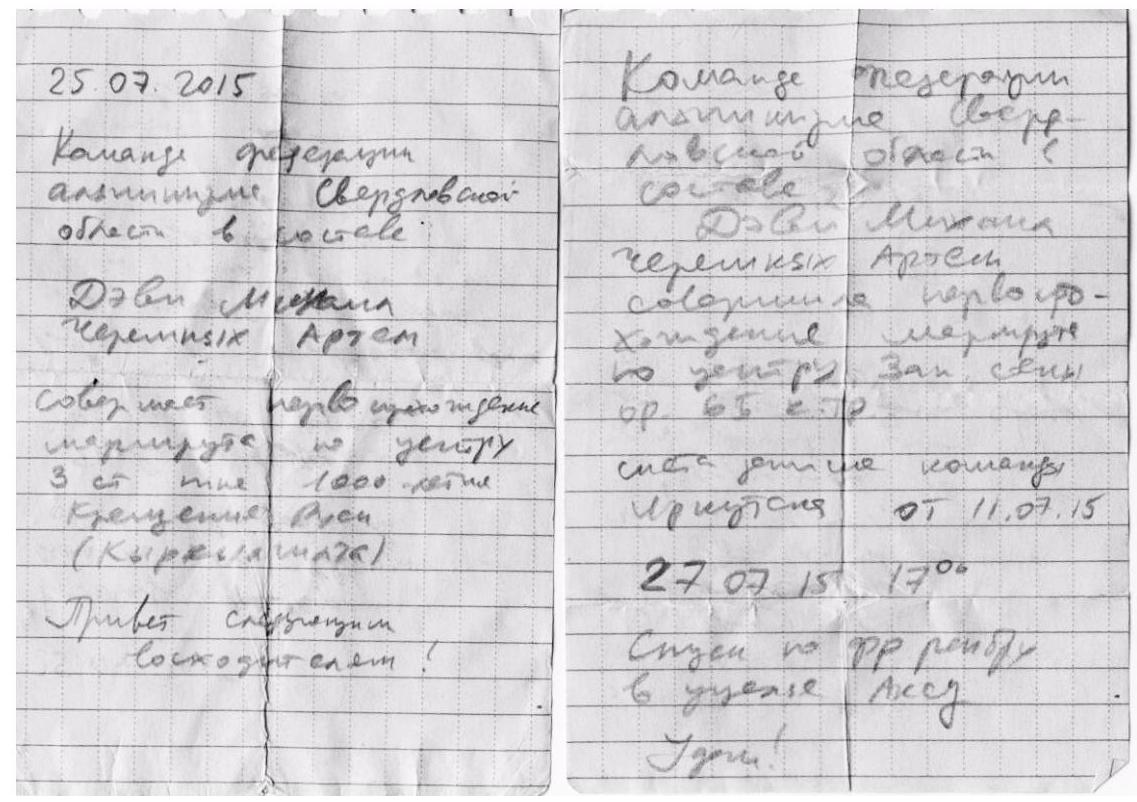 25.07.2015
Команде федерации
альпинизма Свердловской
области в составе
Дэви Михаил
Черемных Артем
совершает первопрохождение
маршрута по центру
З ст пика 1000-летия
Крещения Руси
(Кыркылашата)
Привет следующим
восходителям!
Команде федерации
альпинизма Сверд-
ловской области в
составе
Дэви Михаил
Черемных Артем
совершила первопро-
хождение маршрута
по центру Зап. стены
ор. 6Б к.тр.
снята записка команды
Иркутска от 11.07.15
27 07 15 17⁰⁰
Спуск по ребру
в ущелье Аксу
Удачи!